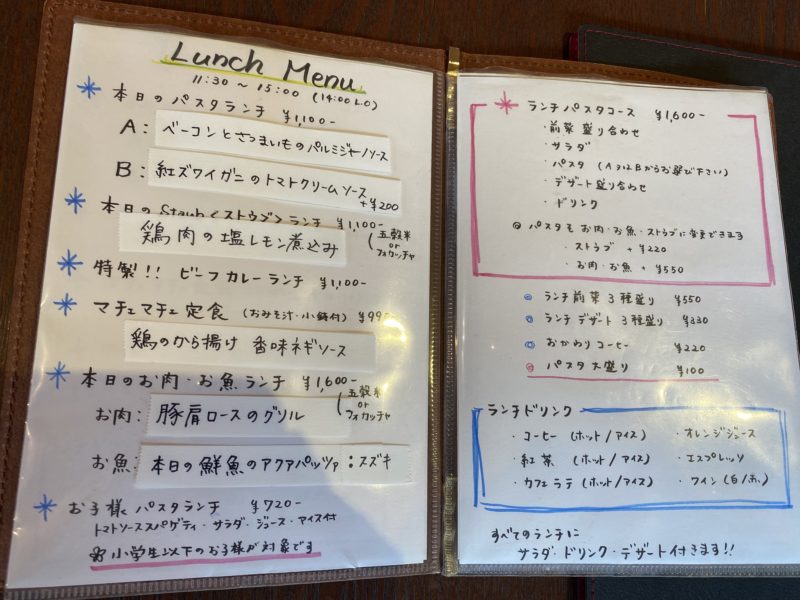 Lunch Menu
11:30 ～ 15:00 (14:00 L.O)
＊ 本日の パスタランチ ¥1,100-
A: ベーコンとさつまいものパルミジャーノソース
B: 紅ズワイガニのトマトクリームソース +¥200
＊ 本日の Staub<ストウブ>ランチ ¥1,100-
鶏肉の塩レモン煮込み (五穀米 or フォカッチャ
＊ 特製!! ビーフカレーランチ ¥1,100-
＊ マチェマチェ定食 (おみそ汁・小鉢付) ¥990-
鶏のから揚げ 香味ネギソース
＊ 本日のお肉・お魚ランチ ¥1,600-
お肉: 豚肩ロースのグリル (五穀米 or フォカッチャ
お魚: 本日の鮮魚のアクアパッツァ : スズキ
＊ お子様パスタランチ ¥720-
トマトソーススパゲティ・サラダ・ジュース・アイス付
※小学生以下のお子様が対象です
＊ ランチパスタコース ¥1,600-
・前菜盛り合わせ
・サラダ
・パスタ (A又はBからお選び下さい)
・デザート盛り合わせ
・ドリンク
◎ パスタをお肉・お魚・ストウブに変更できます
・ストウブ +¥220
・お肉・お魚 +¥550
◎ ランチ前菜3種盛り ¥550
◎ ランチデザート3種盛り ¥330
◎ おかわりコーヒー ¥220
◎ パスタ大盛り ¥100
ランチドリンク
・コーヒー (ホット/アイス) ・オレンジジュース
・紅茶 (ホット/アイス) ・エスプレッソ
・カフェラテ (ホット/アイス) ・ワイン(白/赤)
すべてのランチに
サラダ・ドリンク・デザート付きます!!